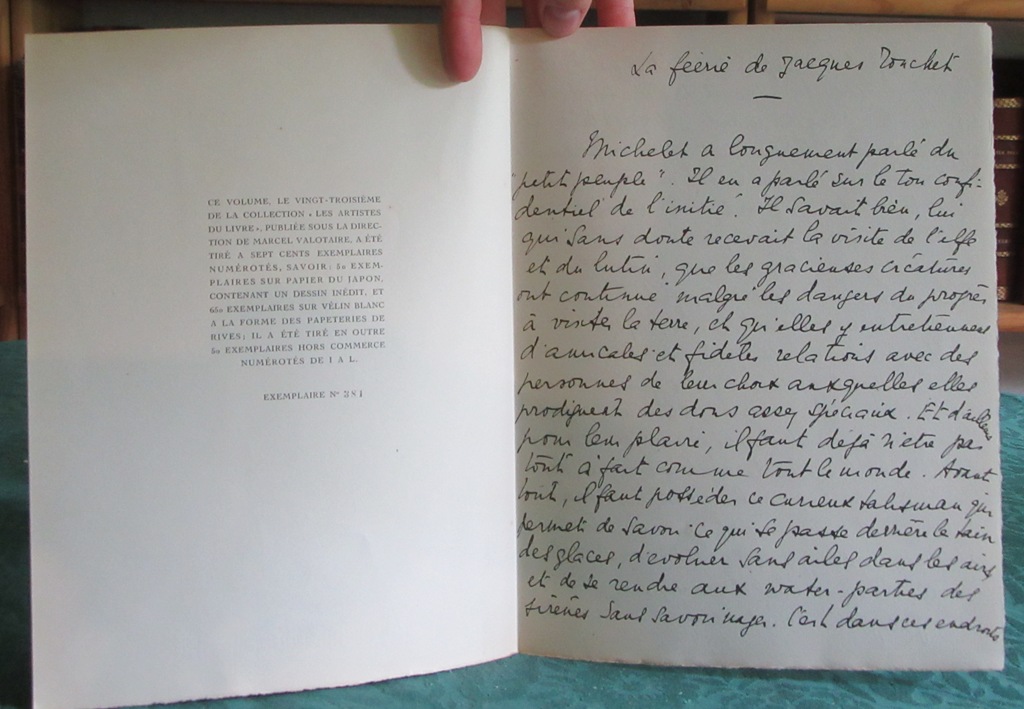 CE VOLUME, LE VINGT-TROISIÈME
DE LA COLLECTION « LES ARTISTES
DU LIVRE », PUBLIÉE SOUS LA DIREC-
TION DE MARCEL VALOTAIRE, A ÉTÉ
TIRÉ A SEPT CENTS EXEMPLAIRES
NUMÉROTÉS, SAVOIR : 50 EXEM-
PLAIRES SUR PAPIER DU JAPON,
CONTENANT UN DESSIN INÉDIT, ET
650 EXEMPLAIRES SUR VÉLIN BLANC
A LA FORME DES PAPETERIES DE
RIVES ; IL A ÉTÉ TIRÉ EN OUTRE
50 EXEMPLAIRES HORS COMMERCE
NUMÉROTÉS DE I A L.
EXEMPLAIRE N° 381
La féerie de Jacques Touchet
Michelet a longuement parlé du
"petit peuple". Il en a parlé sur le ton confi-
dentiel de l'initié. Il savait bien, lui
qui sans doute recevait la visite de l'elfe
et du lutin, que les gracieuses créatures
ont continué malgré les dangers du progrès
à visiter la terre, et qu'elles y entretiennent
d'amicales et fidèles relations avec des
personnes de leur choix auxquelles elles
prodiguent des dons assez spéciaux. Et d'ailleurs
pour leur plaire, il faut déjà n'être pas
tout à fait comme tout le monde. Avant
tout, il faut posséder ce curieux talisman qui
permet de savoir ce qui se passe derrière le tain
des glaces, d'évoluer sans ailes dans les airs
et de se rendre aux water-parties des
sirènes sans savoir nager. C'est dans ces endroits